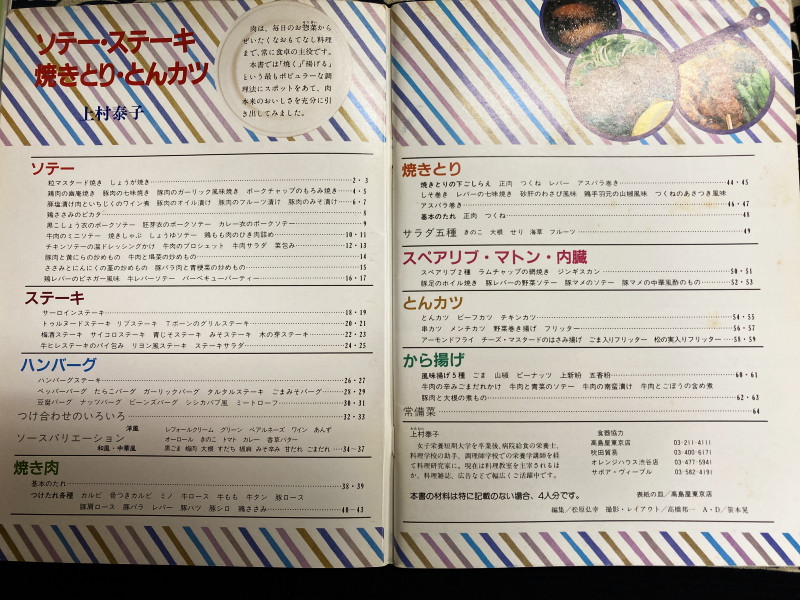 ソテー・ステーキ
焼きとり・とんカツ
上村泰子
肉は、毎日のお惣菜から
ぜいたくなおもてなし料理
まで、常に食卓の主役です。
本書では「焼く」「揚げる」
という最もポピュラーな調
理法にスポットをあて、肉
本来のおいしさを充分に引
き出してみました。
ソテー
粒マスタード焼き しょうが焼き……2・3
鶏肉の幽庵焼き 豚肉の七味焼き 豚肉のガーリック風味焼き ポークチャップのもろみ焼き……4・5
豚塩漬け肉といちじくのワイン煮 豚肉のオイル漬け 豚肉のフルーツ漬け 豚肉のみそ漬け……6・7
鶏ささみのピカタ……8
黒こしょう衣のポークソテー 胚芽衣のポークソテー カレー衣のポークソテー……9
牛肉のミニソテー 焼きしゃぶ しょうゆソテー 鶏もも肉のひき肉詰め……10・11
チキンソテーの温ドレッシングかけ 牛肉のブロシェット 牛肉サラダ 菜包み……12・13
豚肉と黄にらの炒めもの 牛肉と塌菜の炒めもの……14
ささみとにんにくの茎の炒めもの 豚バラ肉と青梗菜の炒めもの……15
鶏レバーのビネガー風味 牛レバーソテー バーベキューパーティー……16・17
ステーキ
サーロインステーキ……18・19
トゥルヌードステーキ リブステーキ Tボーンのグリルステーキ……20・21
梅酒ステーキ サイコロステーキ 青じそステーキ みそステーキ 木の芽ステーキ……22・23
牛ヒレステーキのパイ包み リヨン風ステーキ ステーキサラダ……24・25
ハンバーグ
ハンバーグステーキ……26・27
ペッパーバーグ たらこバーグ ガーリックバーグ タルタルステーキ ごまみそバーグ……28・29
豆腐バーグ ナッツバーグ ビーンズバーグ シシカバブ風 ミートローフ……30・31
つけ合わせのいろいろ……32・33
ソースバリエーション
洋風 レフォールクリーム グリーン ベアルネーズ ワイン あんず
オーロール きのこ トマト カレー 香草バター
和風・中華風 黒ごま 梅肉 大根 すだち 椒麻 みそ辛み 甘だれ ごまだれ……34〜37
焼き肉
基本のたれ……38・39
つけたれ各種 カルビ 骨つきカルビ ミノ 牛ロース 牛もも 牛タン 豚ロース
豚肩ロース 豚バラ レバー 豚ハツ 豚シロ 鶏ささみ……40〜43
焼きとり
焼きとりの下ごしらえ 正肉 つくね レバー アスパラ巻き……44・45
しそ巻き レバーの七味焼き 砂肝のわさび風味 鶏手羽元の山椒風味 つくねのあさつき風味
アスパラ巻き……46・47
基本のたれ 正肉 つくね……48
サラダ五種 きのこ 大根 せり 海草 フルーツ……49
スペアリブ・マトン・内臓
スペアリブ2種 ラムチャップの網焼き ジンギスカン……50・51
豚足のホイル焼き 豚レバーの野菜ソテー 豚マメのソテー 豚マメの中華風酢のもの……52・53
とんカツ
とんカツ ビーフカツ チキンカツ……54・55
串カツ メンチカツ 野菜巻き揚げ フリッター……56・57
アーモンドフライ チーズ・マスタードのはさみ揚げ ごま入りフリッター 松の実入りフリッター……58・59
から揚げ
風味揚げ5種 ごま 山椒 ピーナッツ 上新粉 五香粉……60・61
牛肉の辛みごまだれかけ 牛肉と青菜のソテー 牛肉の南蛮漬け 牛肉とごぼうの含め煮
豚肉と大根の煮もの……62・63
常備菜……64
上村泰子
女子栄養短期大学を卒業後、病院給食の栄養士、
料理学校の助手、調理師学校での栄養学講師を経
て料理研究家に。現在は料理教室を主宰されるほ
か、料理雑誌、広告などで幅広くご活躍中です。
食器協力
高島屋東京店 03・211・4111
吹田貿易 03・400・6171
オレンジハウス渋谷店 03・477・5941
サボア・ヴィーブル 03・582・4191
本書の材料は特に記載のない場合、4人分です。
表紙の皿／高島屋東京店
編集／松原弘幸 撮影・レイアウト／高橋邦一 A・D／笹本晃